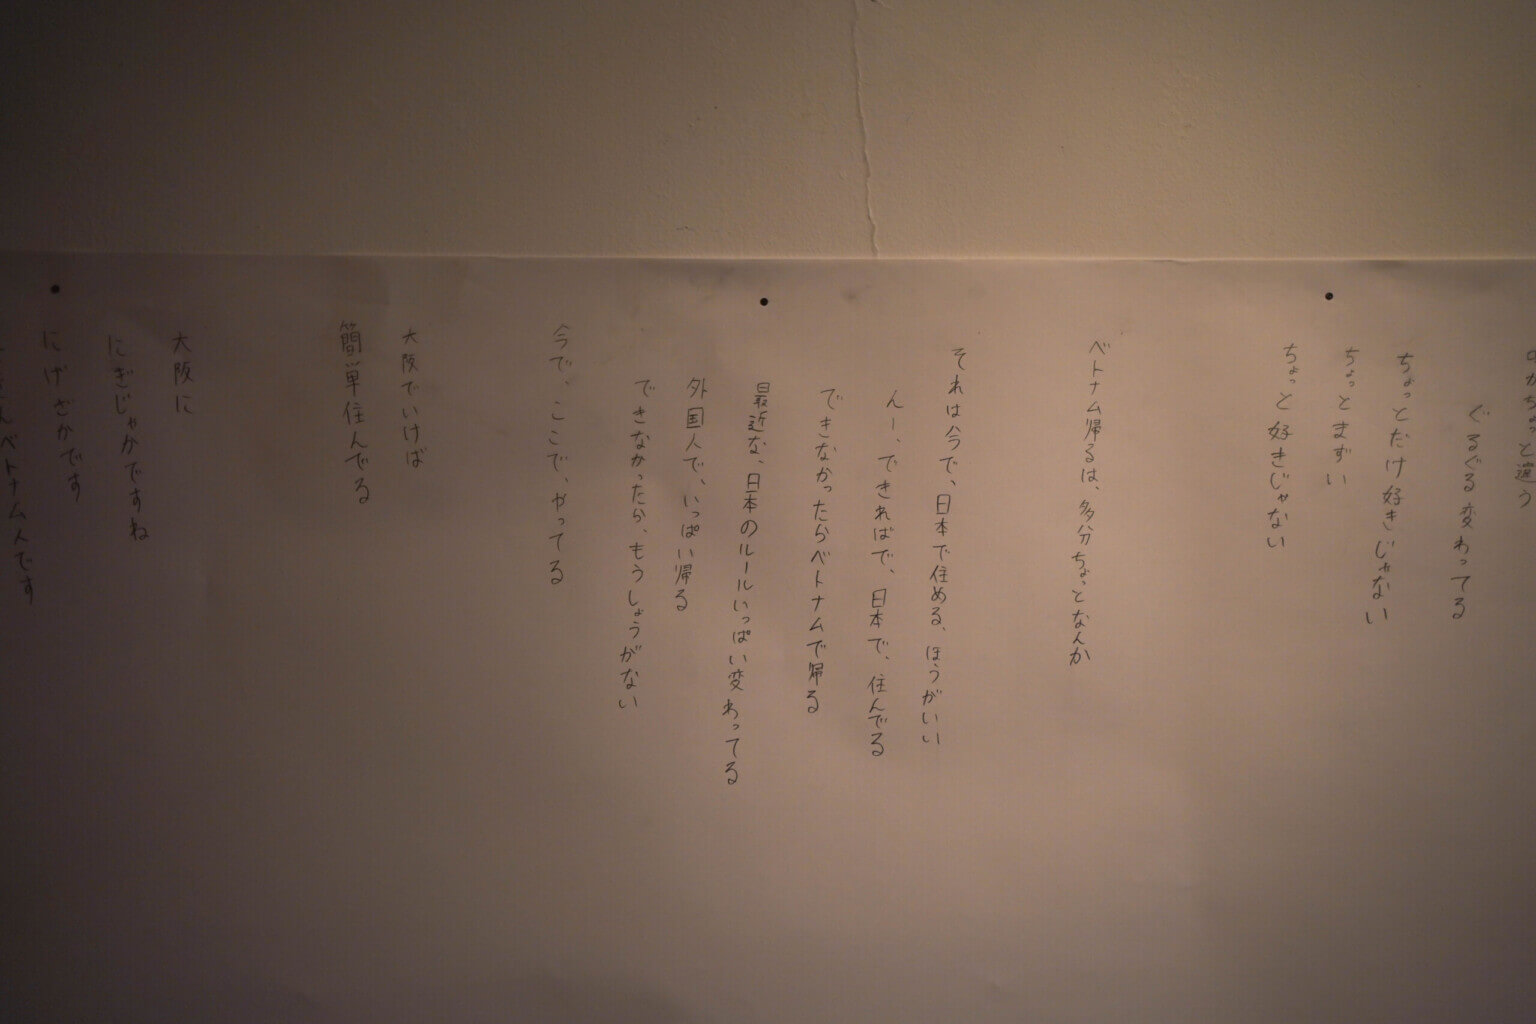 のがちょっと違う
ぐるぐる変わってる
ちょっとだけ好きじゃない
ちょっとまずい
ちょっと好きじゃない
ベトナム帰るは、多分ちょっとなんか
それは今で、日本で住める、ほうがいい
んー、できればで、日本で、住んでる
できなかったらベトナムで帰る
最近な、日本のルールいっぱい変わってる
外国人で、いっぱい帰る
できなかったら、もうしょうがない
今で、ここで、やってる
大阪でいけば
簡単住んでる
大阪に
にぎじゃかですね
にげざかです
さんベトナム人です